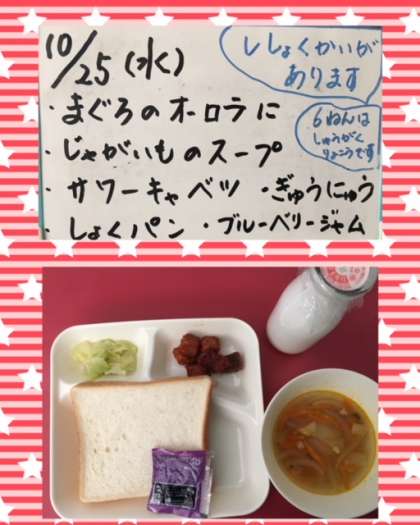 10/25(水)
ししょくかいが
あります
・まぐろのオーロラに
6ねんは
しゅうがく
りょこうです
・じゃがいものスープ
・サワーキャベツ ・ぎゅうにゅう
・しょくパン ・ブルーベリージャム